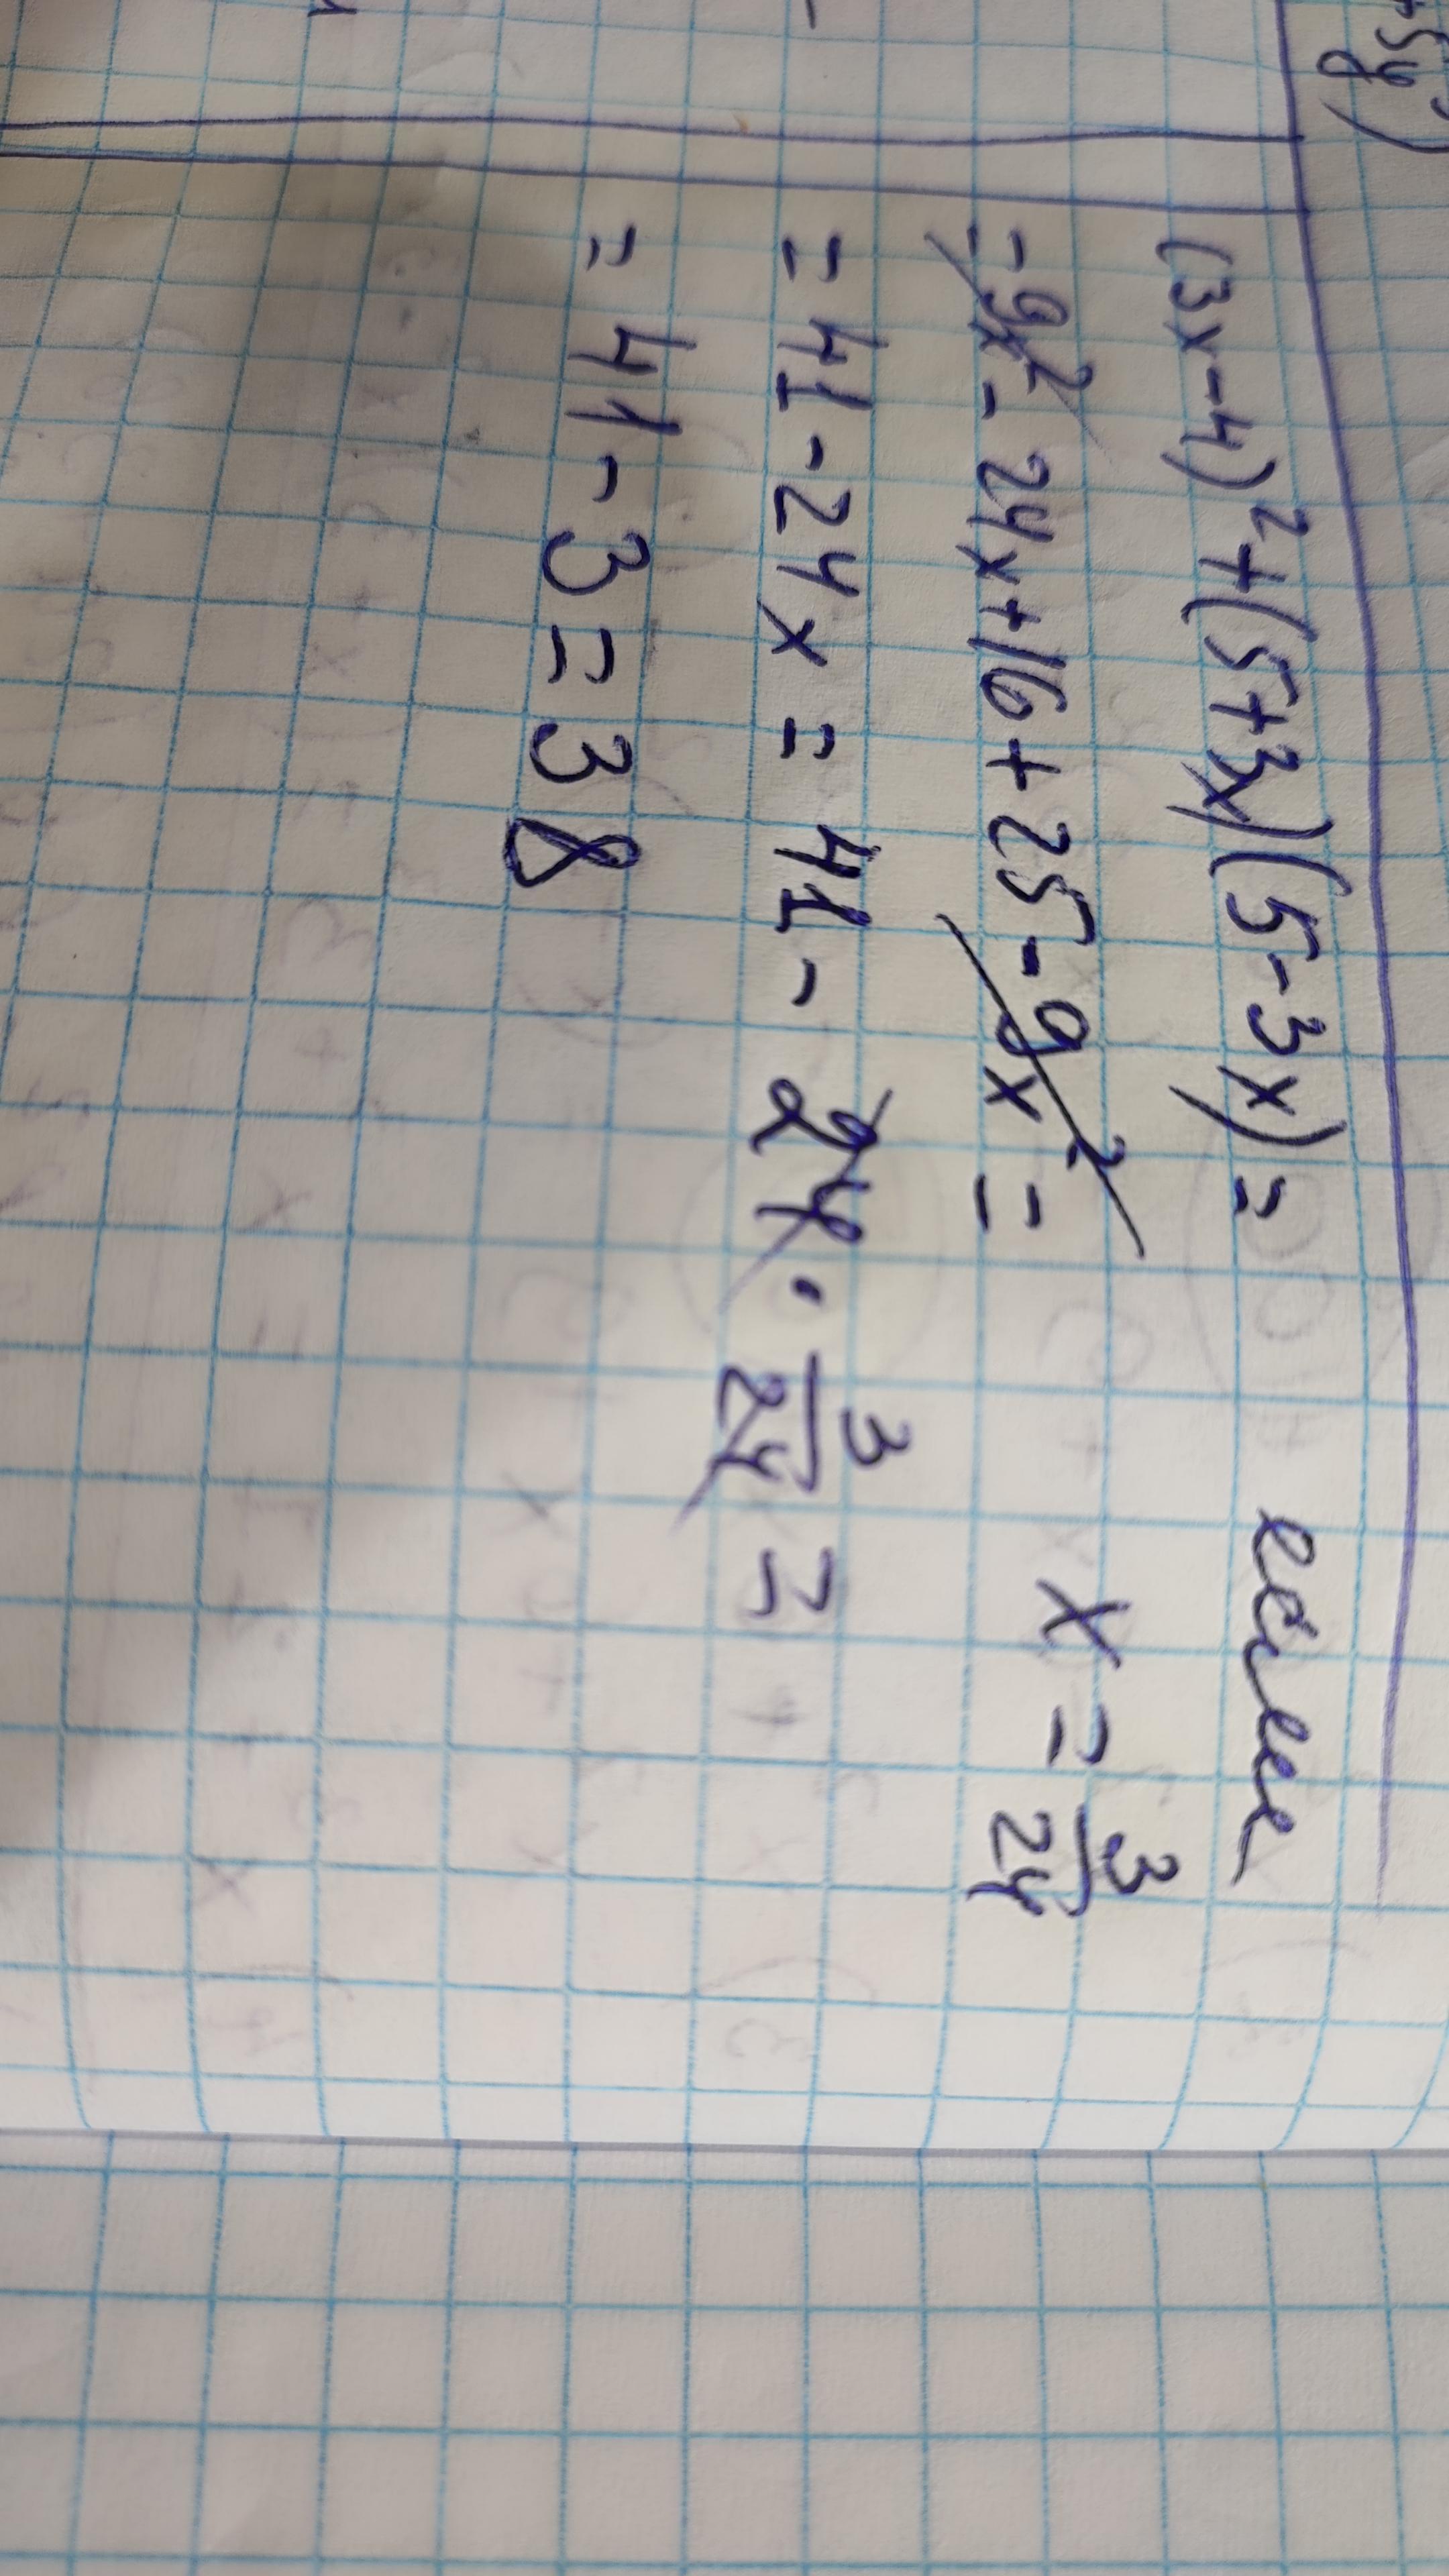 +5y³)
(3x-4)²+(5+3x)(5-3x)= если
=9x²-24x+16+25-9x²= x=3/24
=41-24x=41-24·3/24=
=41-3=38